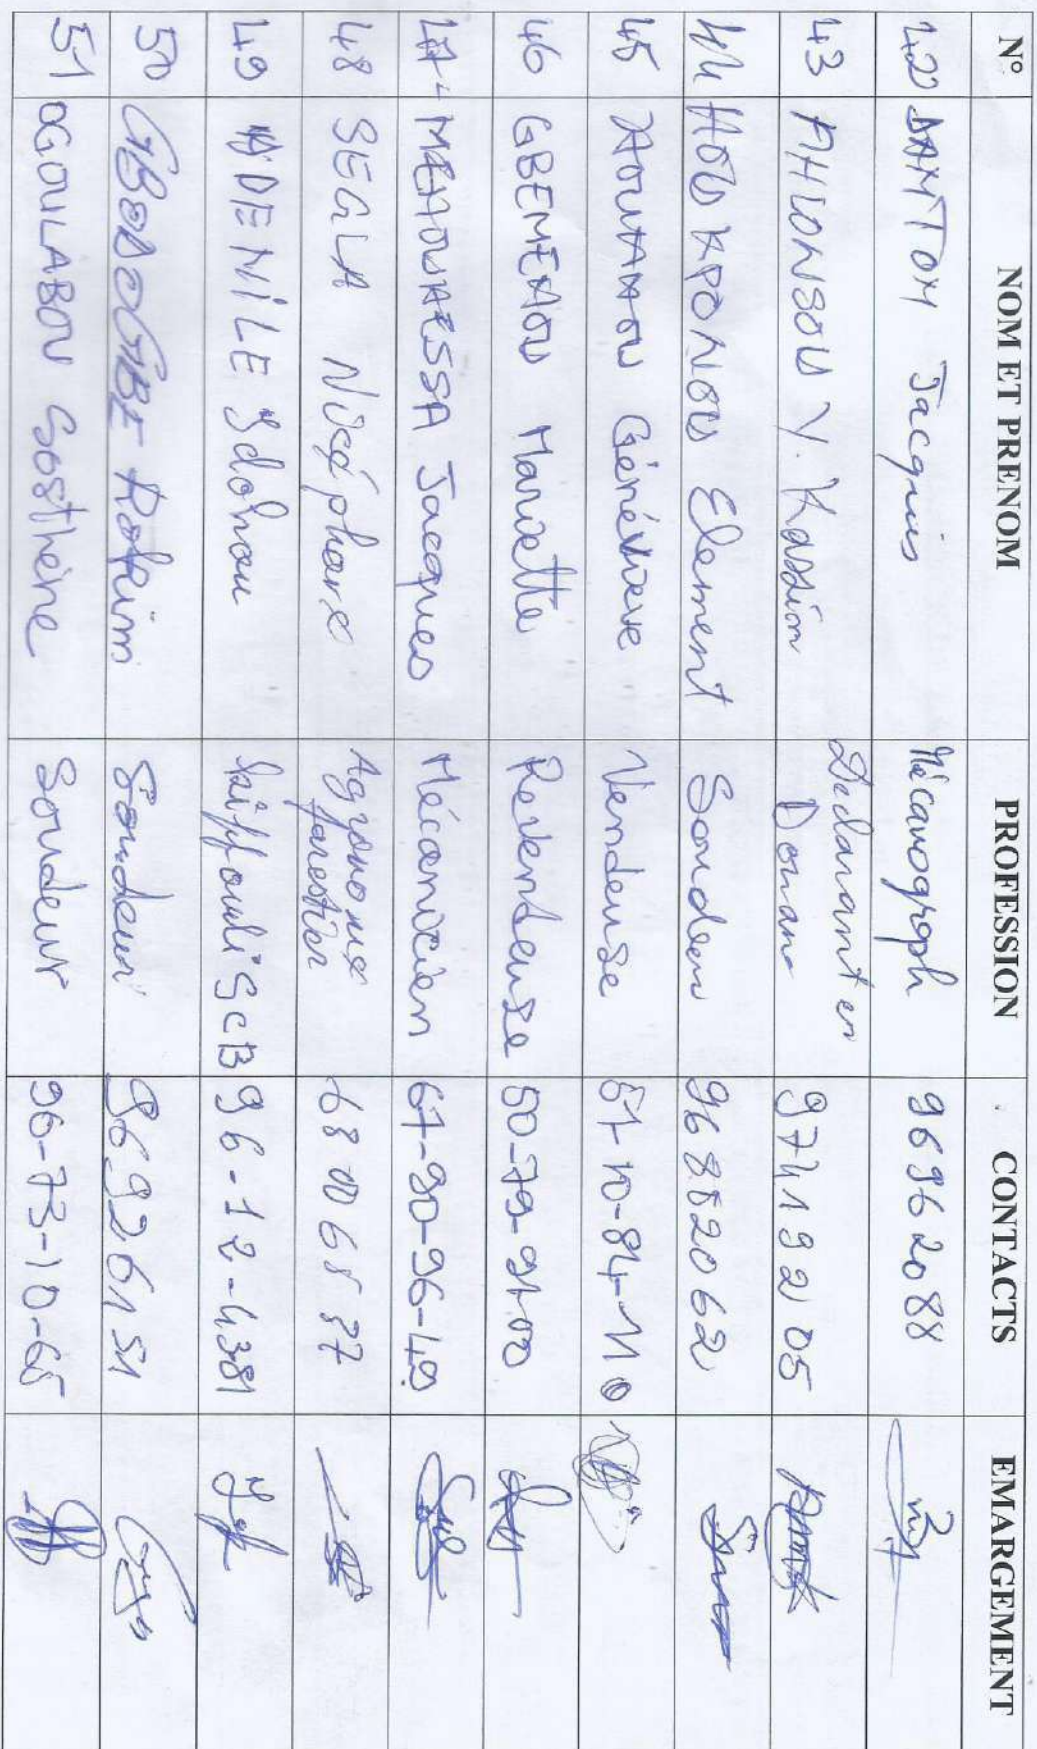 N° NOM ET PRENOM PROFESSION CONTACTS EMARGEMENT
42 DANTON Jacques Mécanograph 96962088
43 AHLONSOU Y. Kassim Déclarant en Douane 97419205
44 HOUKPONOU Element Soudeu 96882062
45 Geneviève Vendeuse 61-10-84-110
46 GBEMENOU Mariette Revendeuse 60-79-91-00
47- MEHOUAESSA Jacques Mécanicien 67-90-96-49
48 SEGLA Nicéphore Agronome forestier
49 ADENILE Idohou SCB 96-12-4381
50 GBEDOGBE Rotimi Soudeur 96926151
51 OGOULABOU Sosthène Soudeur 96-73-10-65